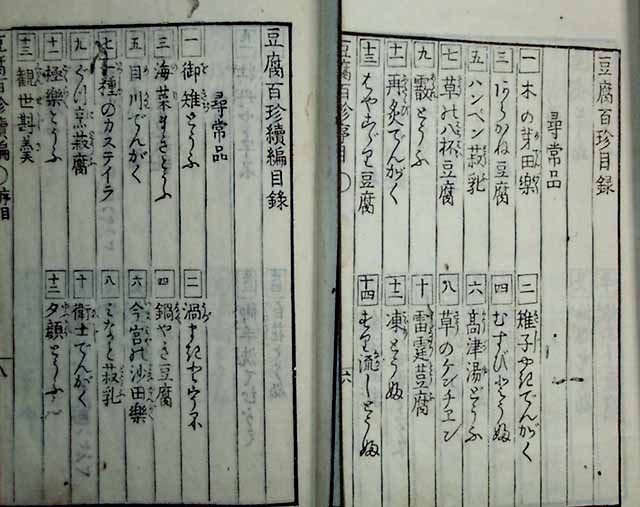 豆腐百珍目録
尋常品
一 木の芽田樂 二 雉子やきでんがく
三 あらかね豆腐 四 むすびとうふ
五 ハンペン菽乳 六 高津湯とうふ
七 草の八杯豆腐 八 草のケンチエン
九 霰とうふ 十 雷霆荳腐
十一 再炙でんがく 十二 凍とうふ
十三 はやこほり豆腐 十四 すり流しとうふ
豆腐百珍序目 六
豆腐百珍續編目録
尋常品
一 御雉とうふ 二 渦まきとうふ
三 海菜まきとうふ 四 鍋やき豆腐
五 目川でんがく 六 今宮の沙田樂
七 一種のカステイラ 八 みなと菽乳
九 菽腐 十 衛士でんがく
十一 極樂とうふ 十二 夕顔とうふ
十三 観世
豆腐百珍續編 序目 八